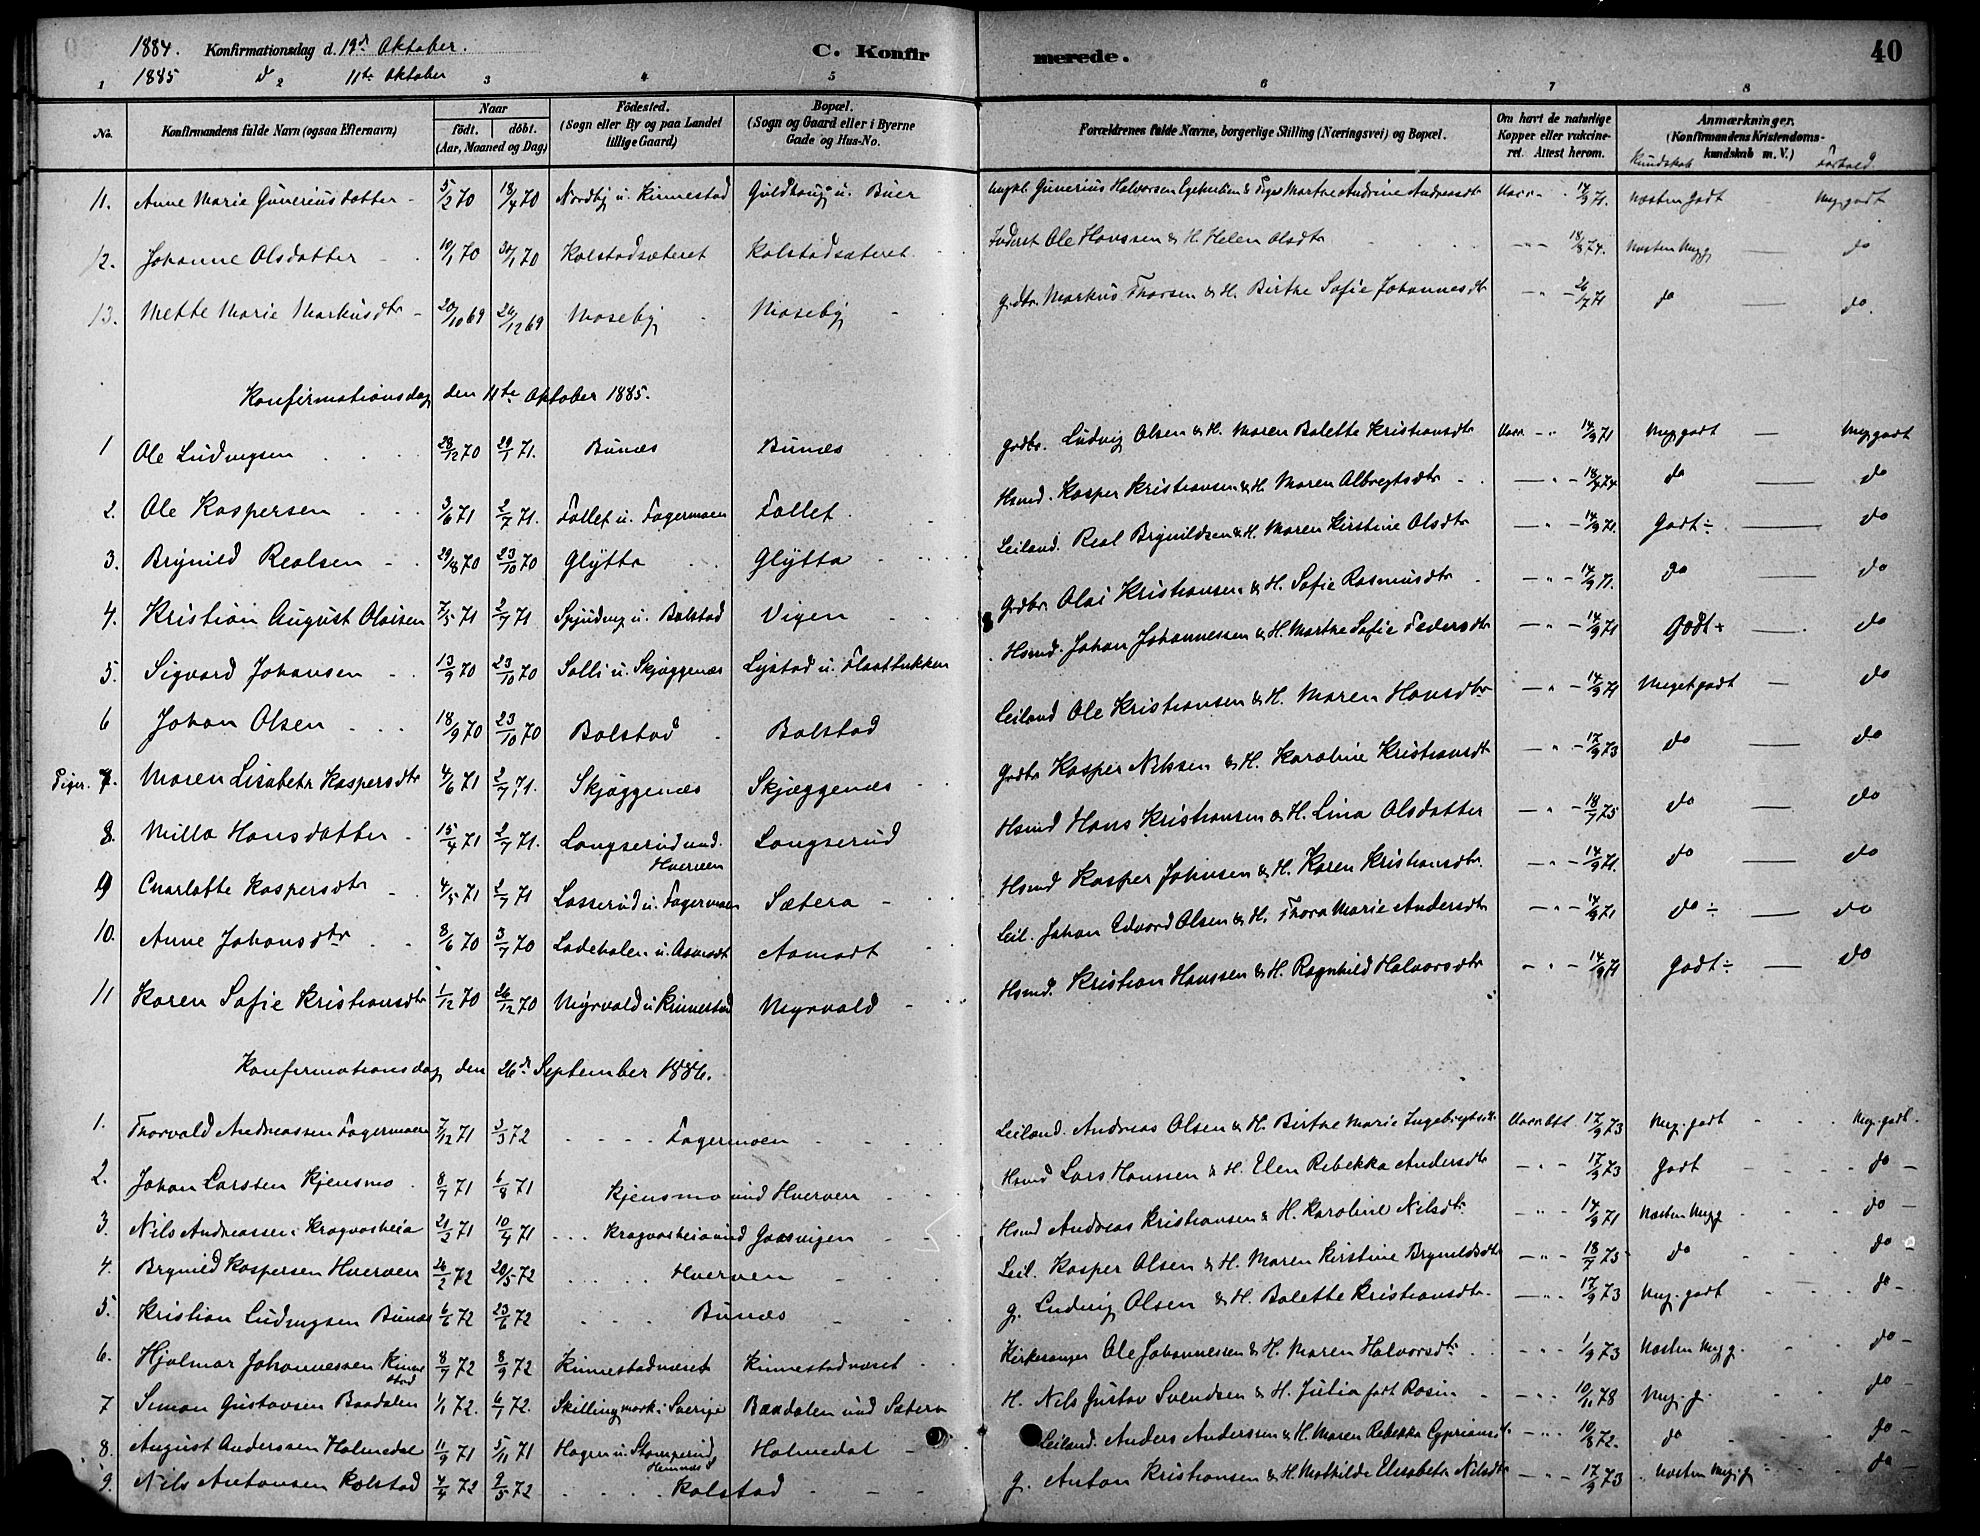 1884. Konfirmationsdag d. 19de Oktober. C. Konfirmerede. 40
1885 d 11te Oktober
1 2 3 4 5 6 7 8
No. Konfirmandens fulde Navn (ogsaa Efternavn) Naar født. døbt. (Aar, Maaned og Dag) Fødested. (Sogn eller By og paa Landet tillige Gaard) Bopæl. (Sogn og Gaard eller i Byerne Gade og Hus-No. Forældrenes fulde Navne, borgerlige Stilling (Næringsvei) og Bopæl. Om havt de naturlige Kopper eller vakcineret. Attest herom. Anmærkninger. (Konfirmandens Kristendomskundskab m. V.) Kundskab Forhold
11. Anne Marie Guneriusdatter 5/2 70 18/4 70 Nordby u. Kinnestad Guldhaug u. Buer Ungkl. Gunerius Halvorsen & Pige Marthe Andrine Andreasdtr Vacc 14/9 71. Næsten godt Meg. godt
12. Johanne Olsdatter 10/1 70 30/1 70 Kolstadsæteret Kolstadsæteret Inderst Ole Hanssen & H. Helen Olsdtr 18/8 74. Næsten Megg. do
13. Mette Marie Markusdtr 20/10 69 26/12 69 Moseby Moseby gdbr. Markus Thorsen & H. Birthe Sofie Johannesdtr 26/7 71 do do.
Konfirmationsdag den 11te Oktober 1885.
1 Ole Ludvigsen 28/12 70 29/1 71. Bunæs Bunæs Grdbr. Ludvig Olsen & H. Maren Bolette Kristiansdtr Vacc 14/9 71 Meg. godt Meg. godt
2. Ole Kaspersen 3/6 71 2/7 71. Follet u. Fagermoen Follet Hsmd. Kasper Kristiansen & H. Maren Albregtsdtr 18/7 74 do do
3. Brynild Realsen 29/8 70 23/10 70 Glytta Glytta Leiland. Real Brynildsen & H. Maren Kirstine Olsdtr 14/9 71. Godt ÷ do
4. Kristian August Olaisen 7/5 71 2/7 71 Spindvig u. Bolstad Vigen Grdbr. Olai Kristiansen & H. Sofie Rasmusdtr 14/9 71. do do
5. Sigvard Johansen 13/9 70 23/10 70 Solli u. Skjæggenæs Lystad u. Flaatbukken Hsmd. Johan Johannessen & H. Marthe Sofie Pedersdtr 14/9 71 Godt + do
6 Johan Olsen 18/9 70 23/10 70 Bolstad Bolstad Leiland Ole Kristiansen & H. Maren Hansdtr 14/9 71 Meget godt do
Piger. 7. Maren Lisabeth Kaspersdtr 4/6 71 2/7 71. Skjæggenæs Skjæggenæs Grdbr Kasper Nilssen & H. Karoline Kristiansdtr 17/9 73 do do
8. Milla Hansdatter 15/4 71 2/7 71. Langserud und. Hverven Langserud Hsmd Hans Kristiansen & H. Lina Olsdatter 18/7 75 do do
9 Charlotte Kaspersdtr 4/5 71 2/7 71 Lasserud u. Fagermoen Sætera Hsmd Kasper Johnsen & H. Karen Kristiansdtr. 14/9 71. do do
10. Anne Johansdtr 8/6 70 3/7 70 Ladehalen u. Aamodt Aamodt Leil. Johan Edvard Olsen & H. Thora Marie Andersdtr 14/9 71 do ÷ do
11 Karen Sofie Kristiansdtr 1/12 70 26/12 70 Myrvold u. Kinnestad Myrvold Hsmd. Kristian Hanssen & H. Ragnhild Halvorsdtr 14/9 71 Godt ÷ do
Konfirmationsdag den 26de September 1886.
1. Thorvald Andreassen Fagermoen 7/12 71 3/3 72 Fagermoen Leiland. Andreas Olsen & H. Birthe Marie Ingebrigtsdtr Vacc. Att. 17/9 73 Meg. godt Meg. godt.
2. Johan Carsten Kjensmo 8/7 71 6/8 71 Kjensmo und Hverven Hsmd Lars Hanssen & H. Elen Rebekka Andersdtr 17/9 73 Godt do
3. Nils Andreassen Kragvasheia 21/2 71 10/4 71 Kragvasheia und Gaasvigen Hsmd Andreas Kristiansen & H. Karoline Nilsdtr. 14/9 71 Næsten Megg. do
4. Brynild Kaspersen Hverven 26/2 72 20/5 72 Hverven Leil. Kasper Olsen & H. Maren Kirstine Brynildsdtr 18/7 75 do do
5. Kristian Ludvigsen Bunæs 6/6 72 23/6 72 Bunæs g. Ludvig Olsen & H. Bolette Kristiansdtr. 17/9 73 Meg. godt do
6. Hjalmar Johannessen Kinnestad 8/7 72 8/9 72 Kinnestadnæset Kinnestadnæset Kirkesanger Ole Johannessen & H. Maren Halvorsdtr. 1/9 73 Næsten Meg g. do
7 Simon Gustavsen Baadalen 1/1 72. 6/7 72. Skillingmark i Sverige Baadalen und Sætern H. Nils Gustav Svendsen & H. Julia født Rosin 10/11 78 Meg. g. do
8. August Anderssen Holmedal 11/9 71 5/11 71 Hagen u. Stomperud Hemnæs Holmedal Leiland. Anders Anderssen & H. Maren Rebekka Cypriansdtr. 10/8 72. do do
9. Nils Antonsen Kolstad 4/4 72 2/5 72 Kolstad g. Anton Kristiansen & H. Mathilde Elisabeth Nilsdtr 17/9 73 Næsten Meg. g. do